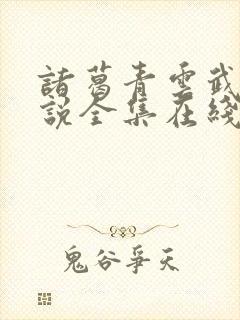 諸葛青雲武
說全集在綫
鬼谷爭天